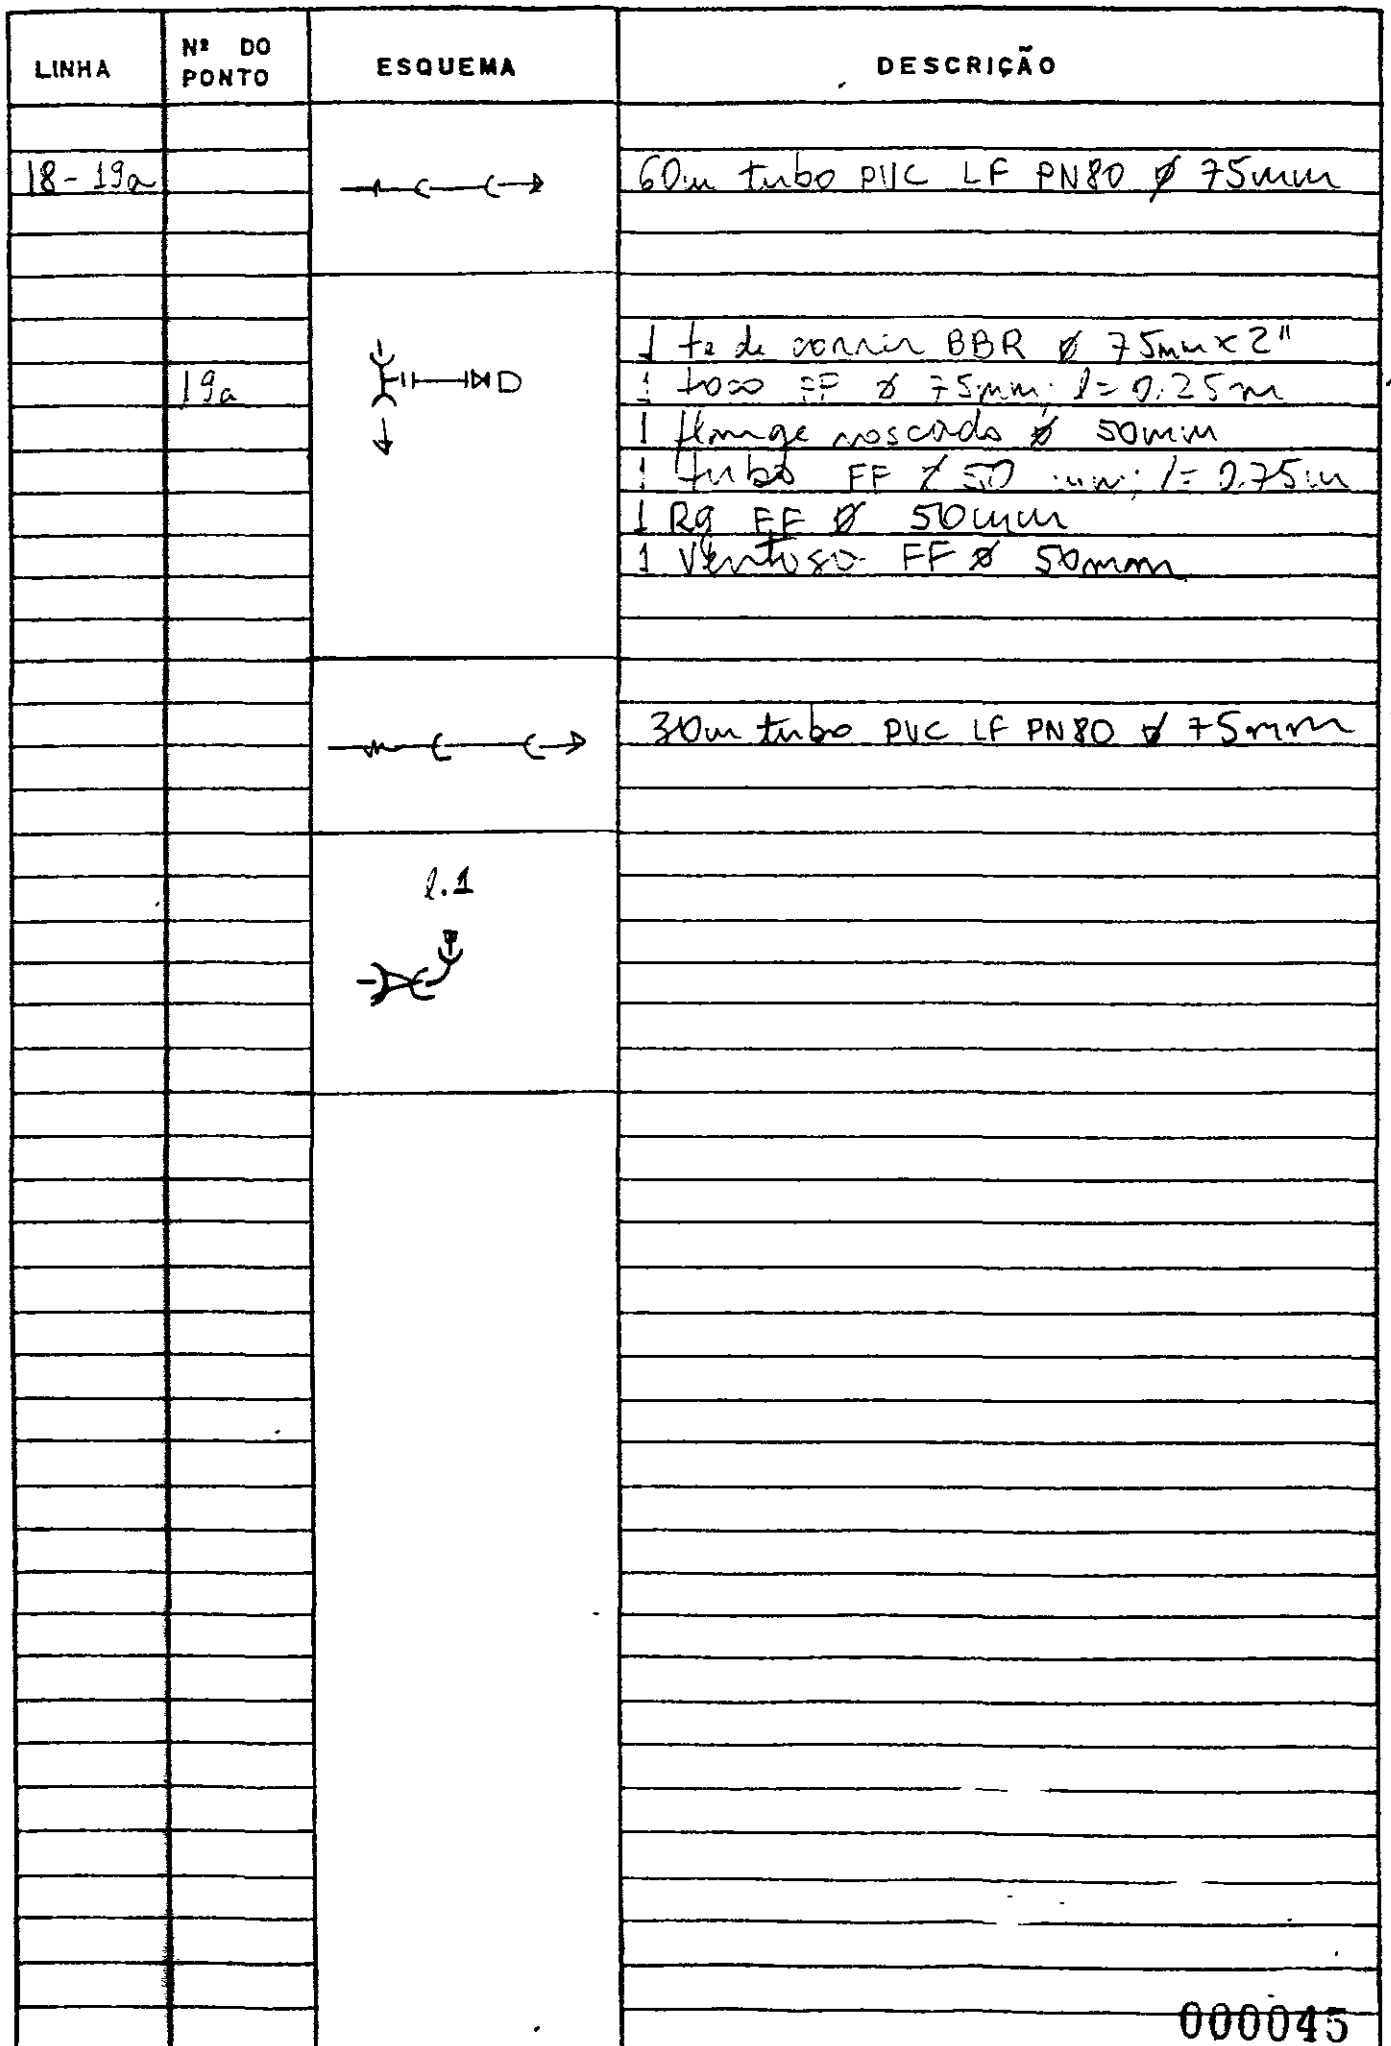 LINHA
Nº DO PONTO
ESQUEMA
DESCRIÇÃO
18-19a
60m tubo PVC LF PN80 ø 75mm
1 te de correr BBR ø 75mm x 2"
19a
1 toco FF ø 75mm; l = 0.25m
1 flange roscado ø 50mm
1 tubo FF ø 50 mm; l = 0.75m
1 Rg FF ø 50mm
1 Ventosa FF ø 50mm
30m tubo PVC LF PN80 ø 75mm
l.1
000045